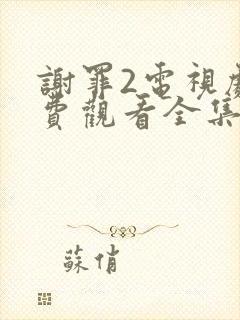 謝罪2電視劇
費觀看全集
蘇俏